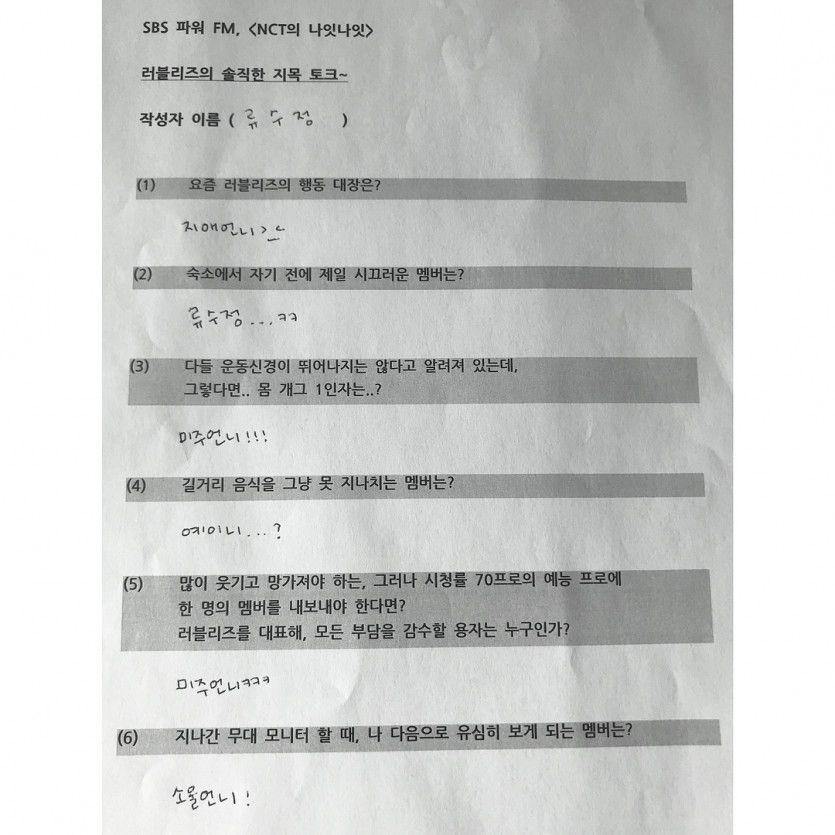 SBS 파워 FM, <NCT의 나잇나잇>
러블리즈의 솔직한 지목 토크~
작성자 이름 ( 류수정 )
(1) 요즘 러블리즈의 행동 대장은?
지애언니
(2) 숙소에서 자기 전에 제일 시끄러운 멤버는?
류수정...ㅋㅋ
(3) 다들 운동신경이 뛰어나지는 않다고 알려져 있는데,
그렇다면.. 몸 개그 1인자는..?
미주언니!!!
(4) 길거리 음식을 그냥 못 지나치는 멤버는?
예이니...?
(5) 많이 웃기고 망가져야 하는, 그러나 시청률 70프로의 예능 프로에
한 명의 멤버를 내보내야 한다면?
러블리즈를 대표해, 모든 부담을 감수할 용자는 누구인가?
미주언니ㅋㅋㅋ
(6) 지나간 무대 모니터 할 때, 나 다음으로 유심히 보게 되는 멤버는?
소울언니!